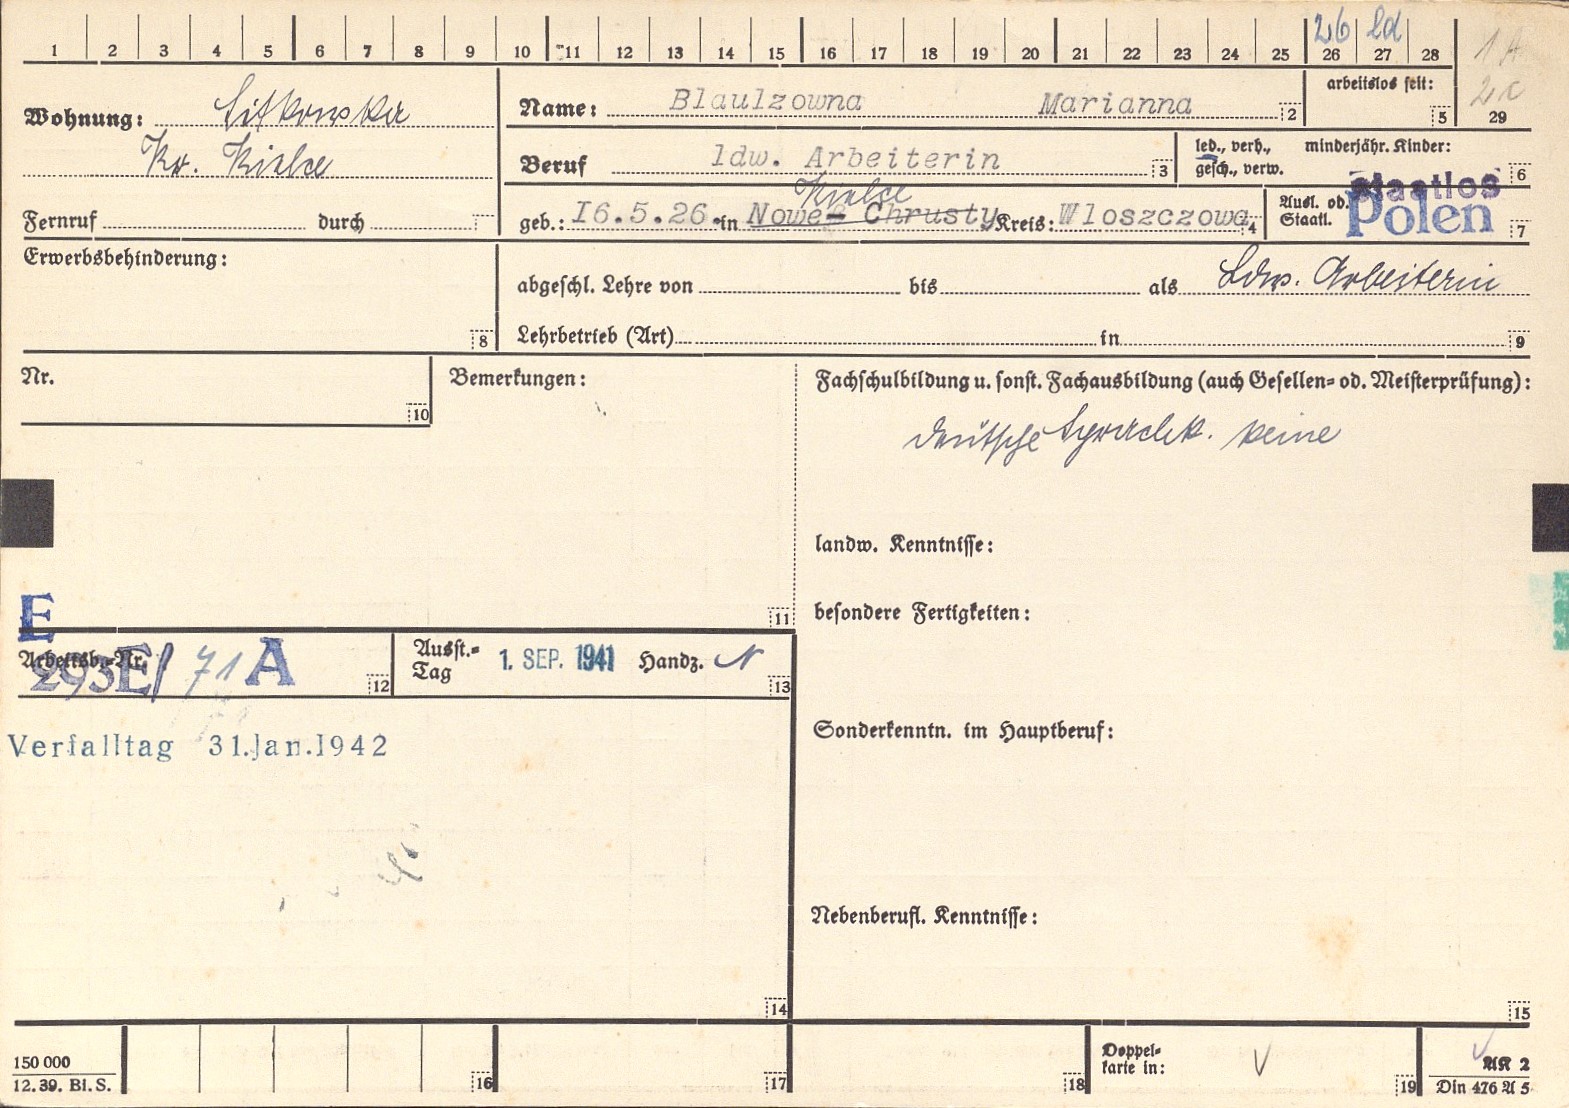 1 2 3 4 5 6 7 8 9 10 11 12 13 14 15 16 17 18 19 20 21 22 23 24 25 26 27 28 29
26 ld
1 A
2 c
Wohnung: Sitkowska
Kr. Kielce
Name: Blaulzowna Marianna 2
arbeitslos seit: 5
Beruf ldw. Arbeiterin 3
led., verh., gesch., verw.
minderjähr. Kinder: 6
Kielce
Fernruf durch 7
geb.: I6.5.26. in Nowe- Chrusty Kreis: Wloszczowa 4
Ausl. od. Staatl. staatlos Polen 7
Erwerbsbehinderung: 8
abgeschl. Lehre von bis als Ldw. Arbeiterin
Lehrbetrieb (Art) in 9
Nr. 10
Bemerkungen: 11
Fachschulbildung u. sonst. Fachausbildung (auch Gesellen- od. Meisterprüfung):
deutsche Sprachk. keine
landw. Kenntnisse:
besondere Fertigkeiten:
E
Arbeitsb.-Nr. 293E/ 71 A 12
Ausst.-Tag 1. SEP. 1941 Handz. N 13
Verfalltag 31.Jan.1942
Sonderkenntn. im Hauptberuf:
Nebenberufl. Kenntnisse:
14
15
150 000
12. 39. Bl. S.
16
17
18
Doppelkarte in: 19
AK 2
Din 476 A 5